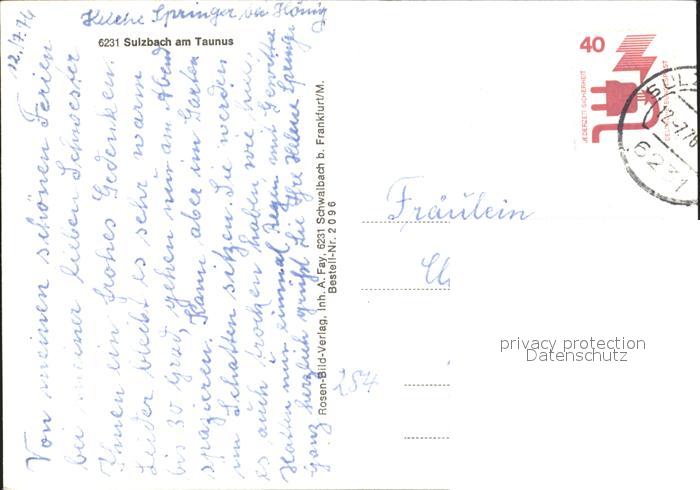 Helene Springer bei König
6231 Sulzbach am Taunus
12./7.76
Von meinen schönen Ferien
bei meiner lieben Schwester
Ihnen ein frohes Gedenken.
Leider bleibt es sehr warm
bis 30 Grad, gehen nur am Abend
spazieren. Kann aber im Garten
im Schatten sitzen. Sie werden
es auch trocken haben wie wir,
Hatten nur einmal Regen mit Gewitter
Ganz herzlich grüßt Sie Ihre Helene Springer
Rosen-Bild-Verlag, Inh. A. Fay, 6231 Schwalbach b. Frankfurt/M.
Bestell-Nr. 2096
40
JEDERZEIT SICHERHEIT
DEUTSCHE BUNDESPOST
SULZ
-7.76
6231
Fräulein
254
privacy protection
Datenschutz